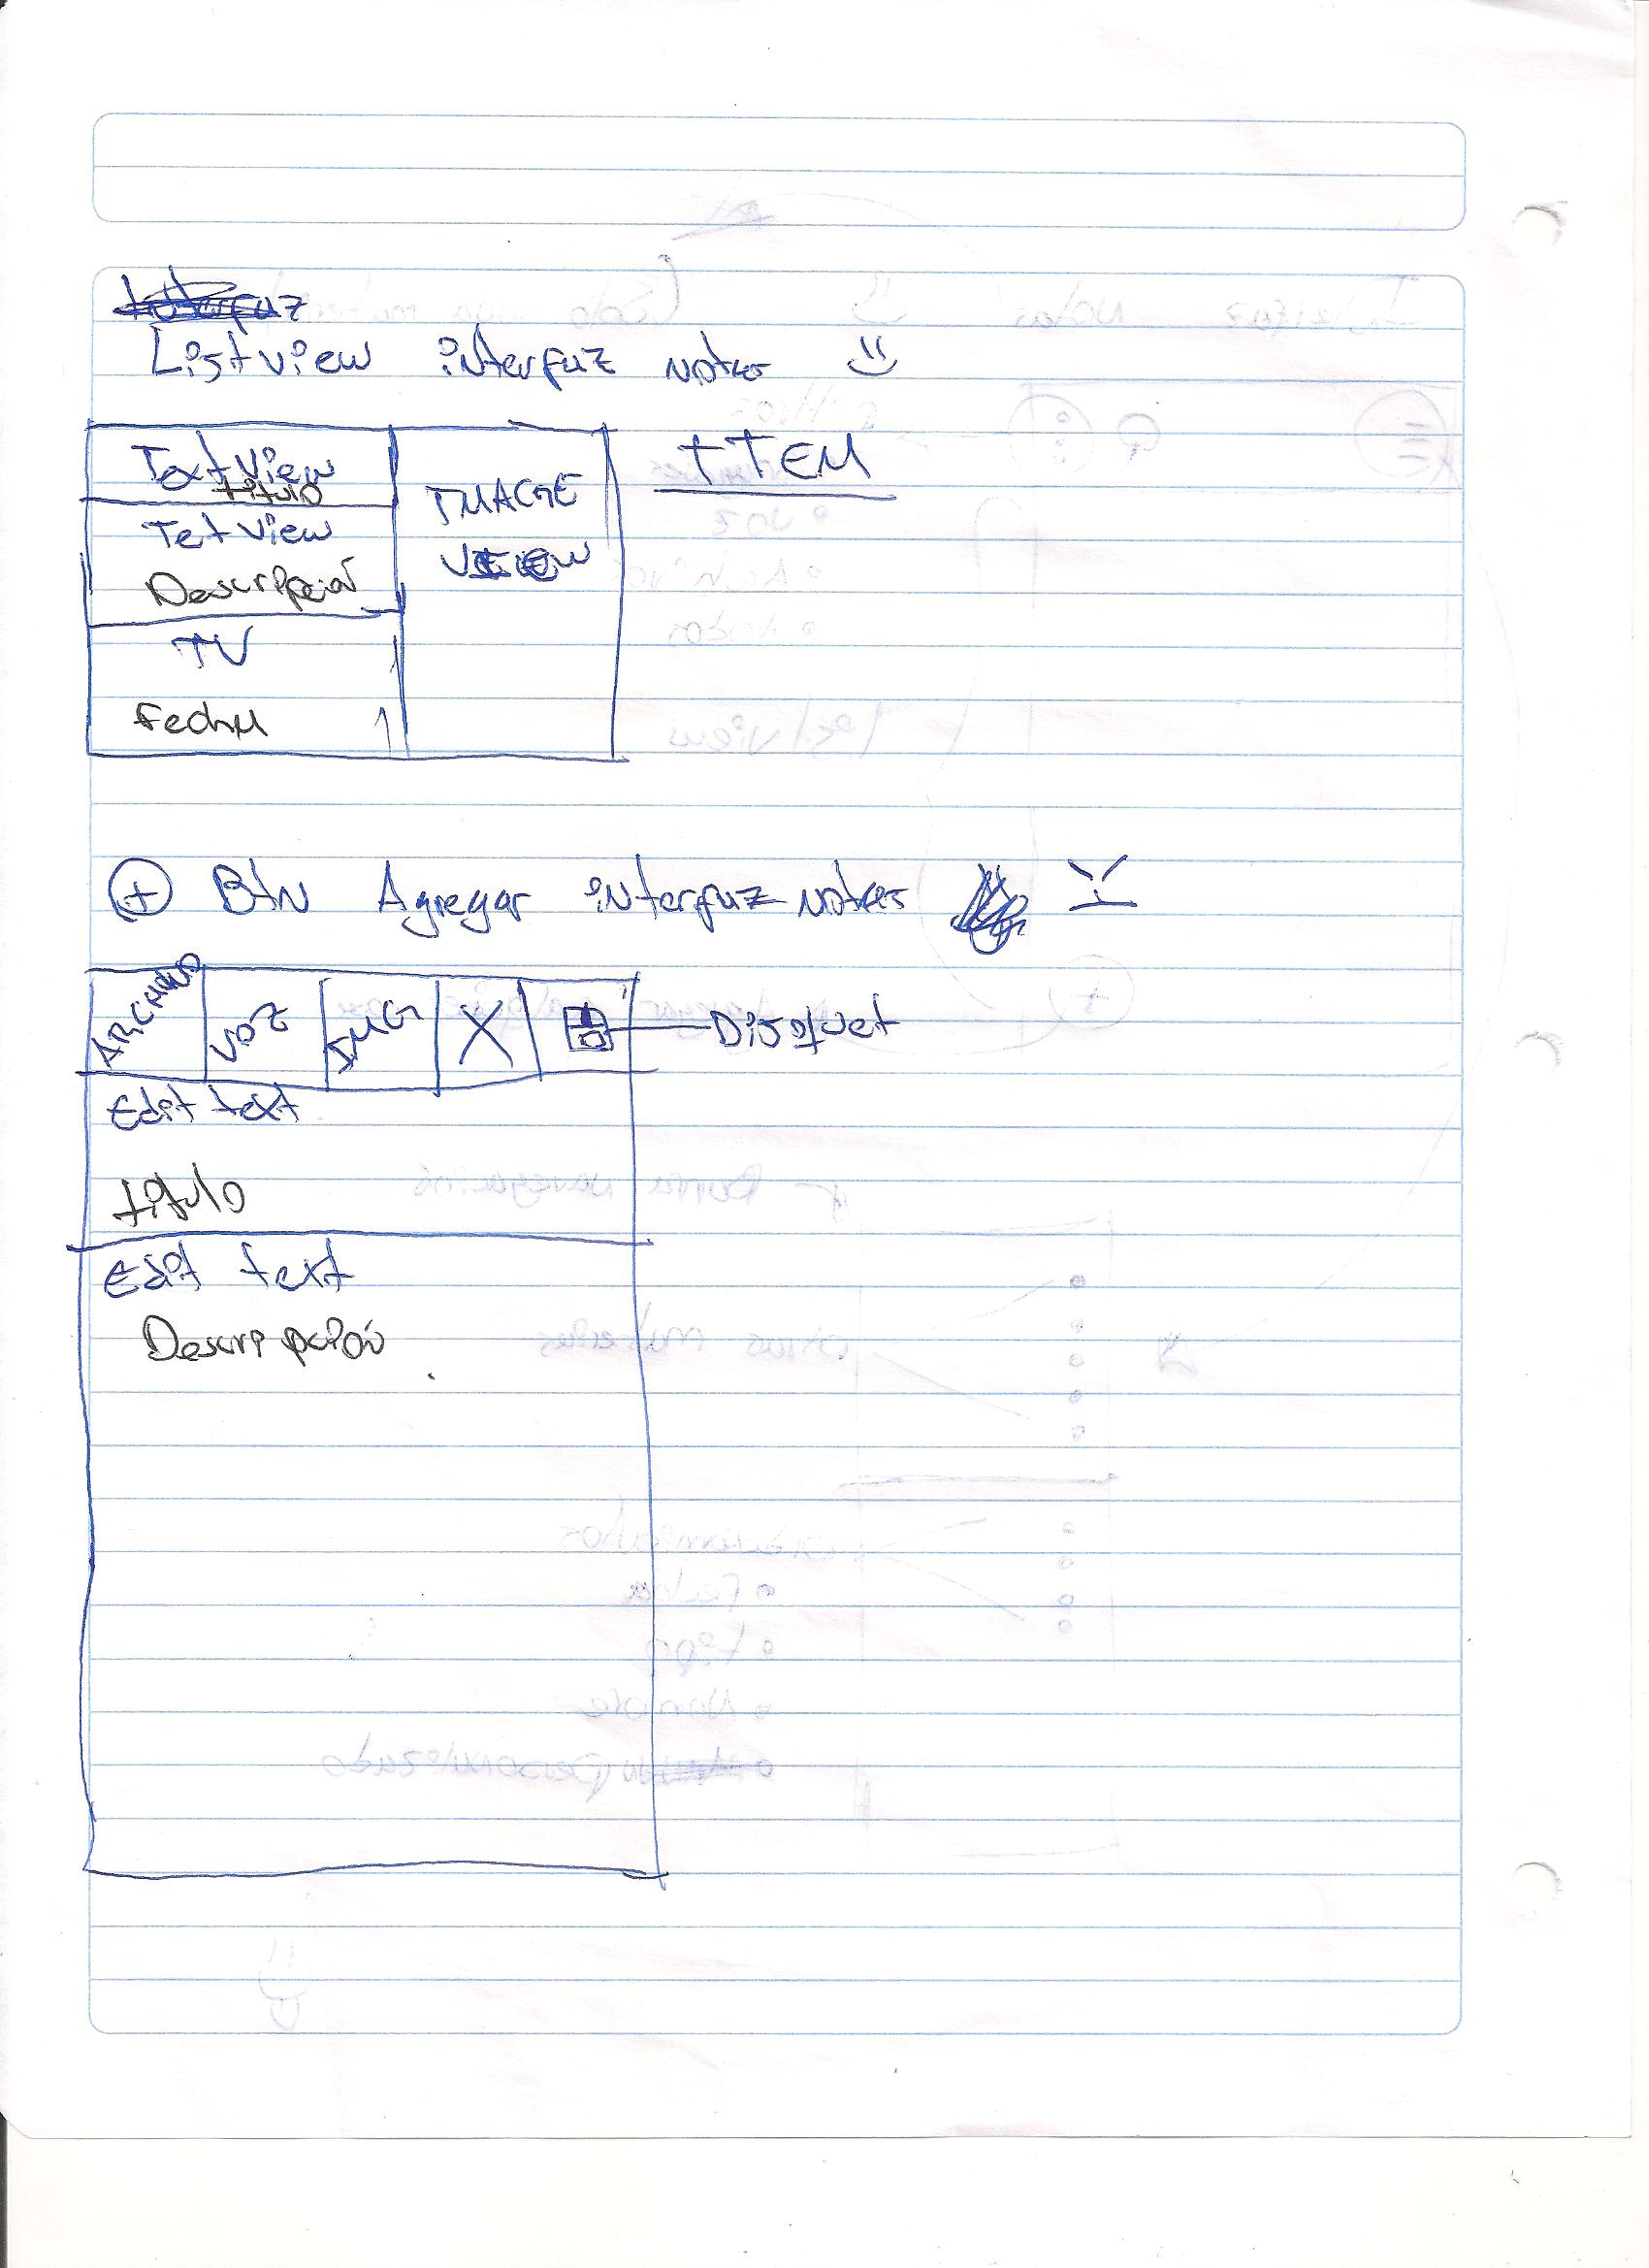 Interfaz
Listview interfaz notas
TextView
titulo
TetView
Descripción
TV
Fecha
IMAGE
VIEW
ITEM
+ Btn Agregar interfaz notas
ARCHIVO
VOZ
IMG
X
Disquet
Edit text
titulo
Edit text
Descripción